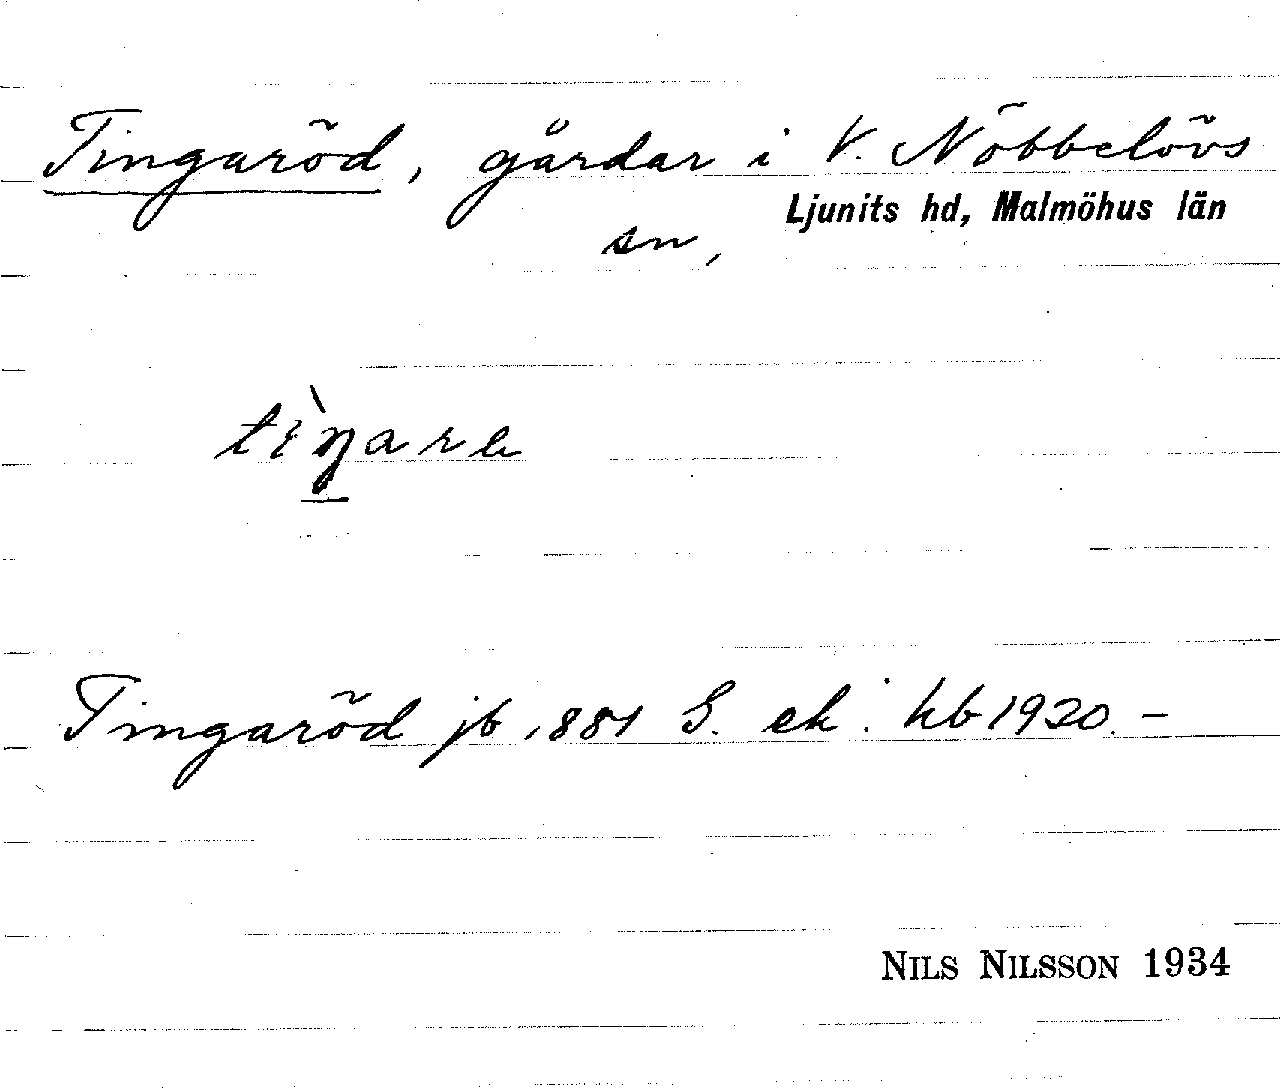 Tingaröd, gårdar i V. Nöbbelövs
sn, Ljunits hd, Malmöhus län
Tingaröd jb 1881 S. ek. kb 1920. –
NILS NILSSON 1934